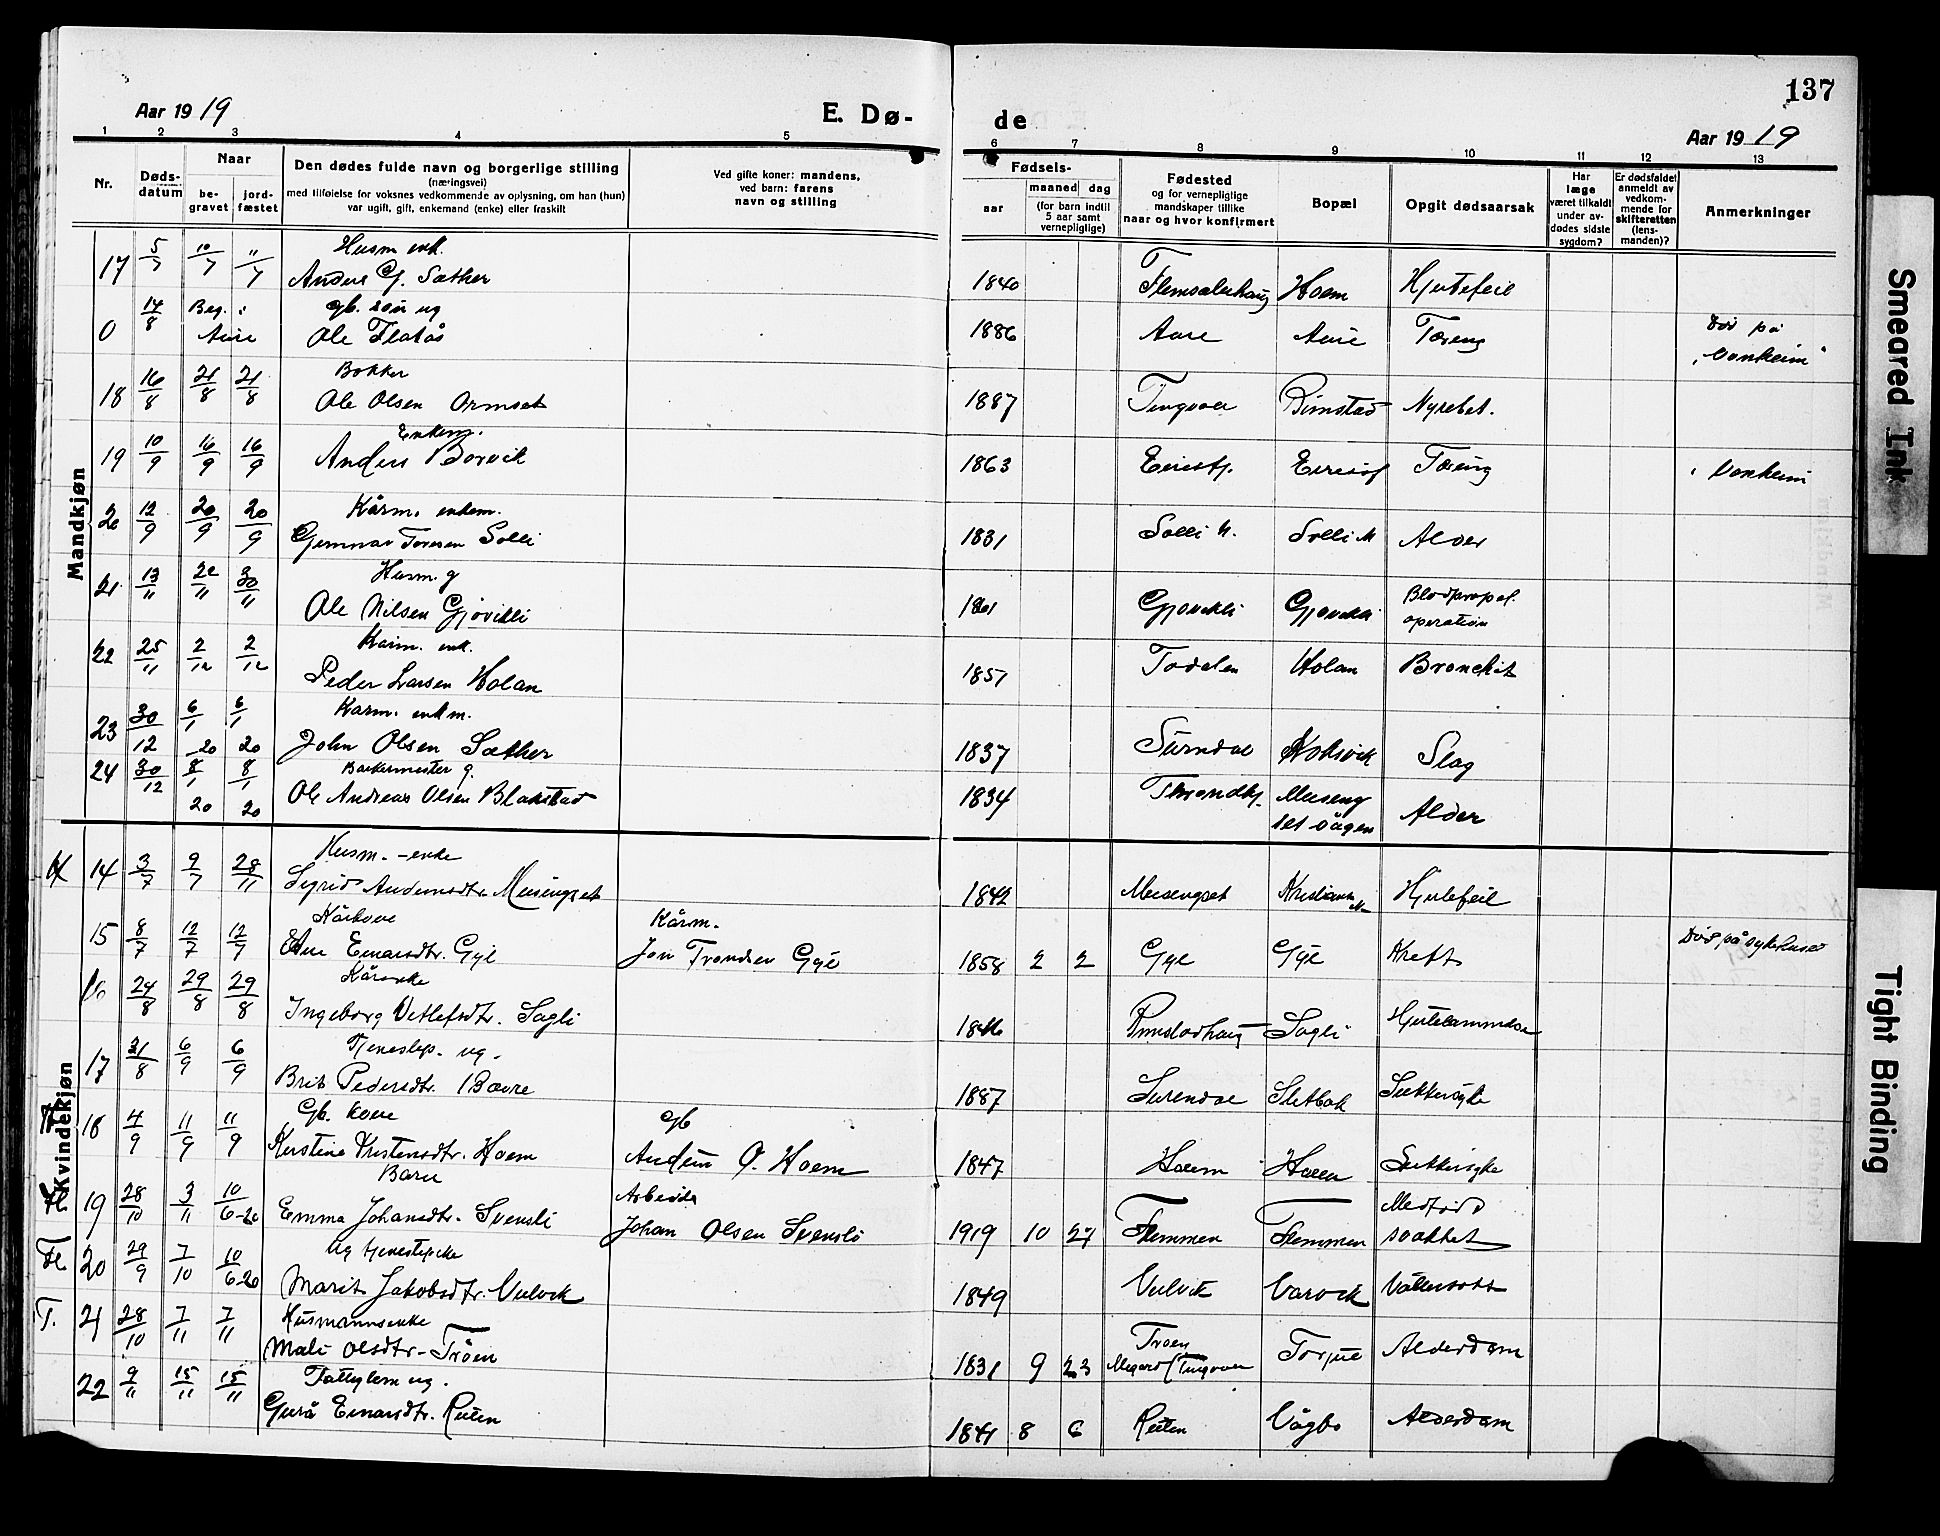 137
Aar 1919
E. Dø-
de
Aar 1919
1 2 3 4 5 6 7 8 9 10 11 12 13
Nr.
Døds-
datum
Naar
be-
gravet
jord-
fæstet
Den dødes fulde navn og borgerlige stilling
(næringsvei)
med tilføielse for voksnes vedkommende av oplysning, om han (hun)
var ugift, gift, enkemand (enke) eller fraskilt
Ved gifte koner: mandens,
ved barn: farens
navn og stilling
Fødsels-
aar
maaned dag
(for barn indtil
5 aar samt
vernepligtige)
Fødested
og for vernepligtige
mandskaper tillike
naar og hvor konfirmert
Bopæl
Opgit dødsaarsak
Har
læge
været tilkaldt
under av-
dødes sidste
sygdom?
Er dødsfaldet
anmeldt av
vedkom-
mende for
skifteretten
(lens-
manden)?
Anmerkninger
Mandkjøn
Husm enk.
17 5/7 10/7 "/7 Anders G. Sæther 1840 Hoem Hjertefeil
gb. søn ug
0 14/8 Beg. i Aure Ole Flatås 1886 Aure Aure Tæring Død på
"Vonheim"
Bøkker
18 16/8 21/8 21/8 Ole Olsen Ormset 1887 Tingvoll Rimstad Nyrebet.
Enkem.
19 10/9 16/9 16/9 Anders Børvik 1863 Eirisfj. Tæring Vonheim
Kårm. enkem.
20 12/9 20/9 20/9 Toresen Solli 1831 Solli M. Solli M Alder
Husm. g
21 13/11 22/11 30/11 Ole Nilsen Gjøvikli 1861 Gjøvikli Gjøvikli Blodpropf.
operation
Kårm. enk.
22 25/11 2/12 2/12 Peder Larsen Holan 1851 Todalen Holan Bronchit
Karm. enkm.
23 30/12 6/1 20 6/1 20 John Olsen Sæther 1837 Surndal Slag
g.
24 30/12 8/1 20 8/1 20 Ole Andreas Olsen Blakstad 1834 Meiseng
set vågen Alder
Kvindekjøn
Husm. - enke
14 3/7 9/7 28/11 Sigrid Andersdtr. Meisingset 1842 Meisengset Hjertefeil
Kårkone Kårm.
15 8/7 12/7 12/7 Ane Einarsdtr. Gyl Jon Trondsen Gyl 1858 2 2 Gyl Gyl Kreft Død på sykehuset
Kårenke
16 24/8 29/8 29/8 Ingeborg Detlefsdtr. Sagli 1846 Rimstadhaug Sagli Hjertelammelse
ug.
17 31/8 6/9 6/9 Brit Pedersdtr. Bævre 1887 Surendal Sletbak Sukkersyke
Gb. kone gb
18 4/9 11/9 11/9 Kirstine Kristensdtr. Hoem O. Hoem 1847 Hoem Hoem Sukkersyke
Barn Arbeider
Fl. 19 28/10 3/11 10/6-20 Emma Johansdtr. Svensli Johan Olsen Svensli 1919 10 27 Flemmen Flemmen Medfødt
svakhet
Ug tjenestepike
Fl. 20 29/9 7/10 10/6-20 Marit Jakobsdtr. Vulvik 1849 Vulvik Vattersott
Husmannsenke
T. 21 28/10 7/11 7/11 Mali Olsdtr. Trøen 1831 9 23 Trøen
Megard (Tingvoll Torjul Alderdom
ug.
22 9/11 15/11 15/11 Gurå Einarsdtr. Reiten 1841 8 6 Reiten Vågbø Alderdom
Smeared Ink
Tight Binding